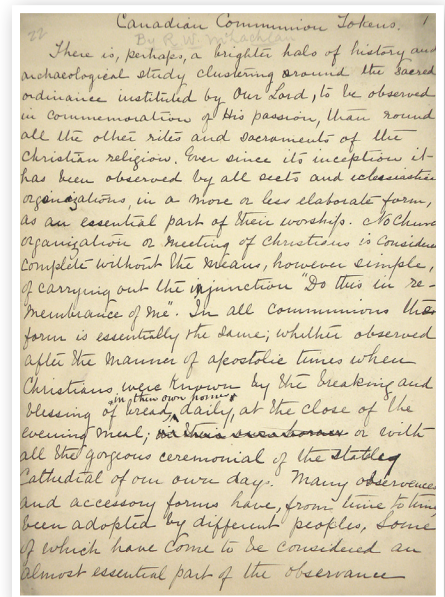 22
Canadian Communion Tokens. 1
By R. W. McLachlan
There is, perhaps, a brighter halo of history and
archaeological study clustering around the Sacred
ordinance instituted by Our Lord, to be observed
in commemoration of His passion, than round
all the other rites and sacraments of the
Christian religion. Ever since its inception it
has been observed by all sects and ecclesiastical
organizations, in a more or less elaborate form,
as an essential part of their worship. No Church
organization or meeting of Christians is considered
complete without the means, however simple,
of carrying out the injunction "Do this in re-
membrance of me". In all communions the
form is essentially the same; whether observed
after the manner of apostolic times when
Christians were known by the breaking and
in their own homes
blessing of bread, daily, at the close of the
evening meal; in their own homes or with
all the gorgeous ceremonial of the stately
Cathedral of our own days. Many observances
and accessory forms have, from time to time
been adopted by different peoples, some
of which have come to be considered an
almost essential part of the observance